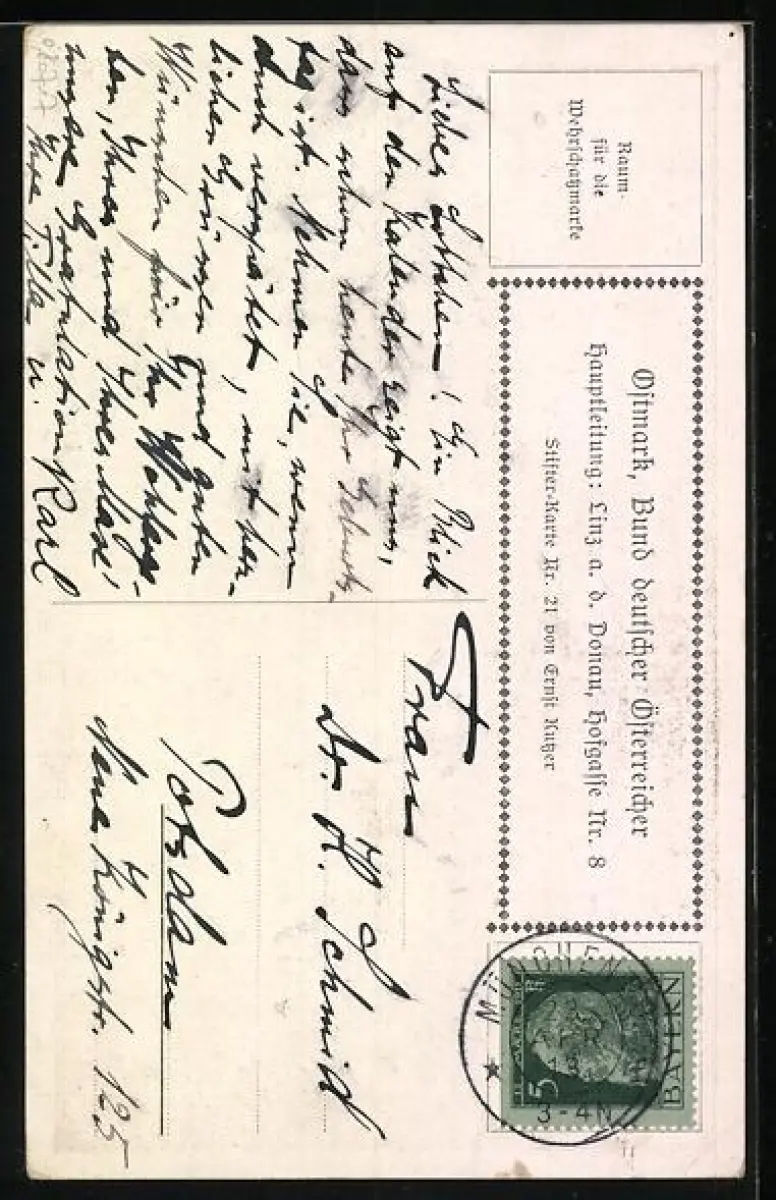 Raum
für die
Wehrschatzmarke
Ostmark, Bund deutscher Österreicher
Hauptleitung: Linz a. d. Donau, Hofgasse Nr. 8
Stifter-Karte Nr. 21 von Ernst Kutzer
MÜNCHEN
3-4N
BAYERN
5
Liebes Lottchen! Ein Blick
auf den Kalender zeigt uns,
dass schon heute Ihr Geburts-
tag ist. Nehmen Sie, wenn
auch verspätet, mit herz-
lichen Grüssen und guten
Wünschen für Ihr Wohlerge-
hen, Ihres und Ihres
unsere Gratulation
Ihre Tilla u. Karl
Frau
Dr. H. Schmid
Potsdam
Neue Königstr. 125